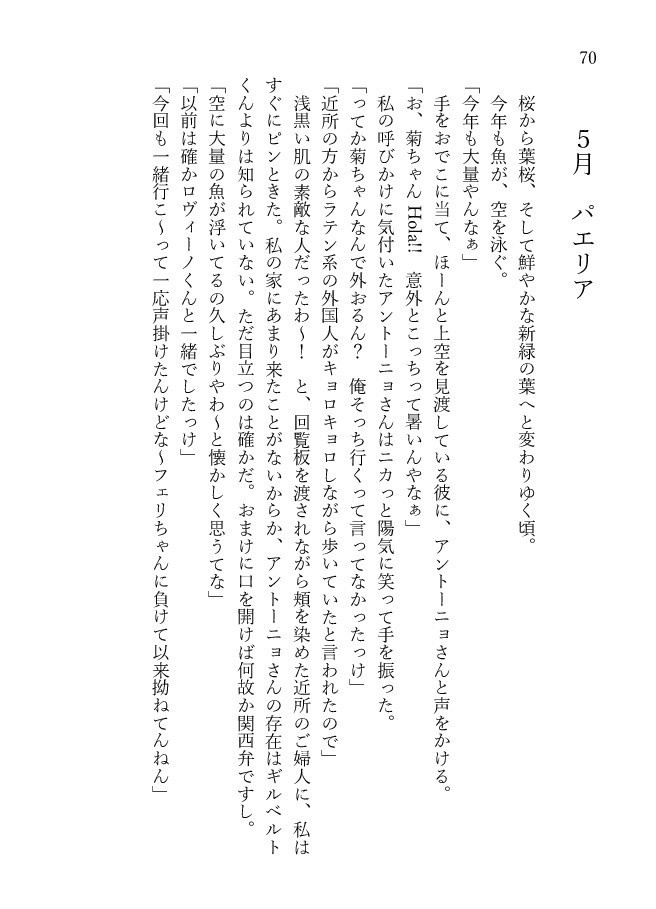 70
5月　パエリア
桜から葉桜、そして鮮やかな新緑の葉へと変わりゆく頃。
今年も魚が、空を泳ぐ。
「今年も大量やんなぁ」
手をおでこに当て、ほーんと上空を見渡している彼に、アントーニョさんと声をかける。
「お、菊ちゃん Hola!!　意外とこっちって暑いんやなぁ」
私の呼びかけに気付いたアントーニョさんはニカっと陽気に笑って手を振った。
「ってか菊ちゃんなんで外おるん？　俺そっち行くって言ってなかったっけ」
「近所の方からラテン系の外国人がキョロキョロしながら歩いていたと言われたので」
浅黒い肌の素敵な人だったわ～！　と、回覧板を渡されながら頬を染めた近所のご婦人に、私は
すぐにピンときた。私の家にあまり来たことがないからか、アントーニョさんの存在はギルベルト
くんよりは知られていない。ただ目立つのは確かだ。おまけに口を開けば何故か関西弁ですし。
「空に大量の魚が浮いてるの久しぶりやわ～と懐かしく思うてな」
「以前は確かロヴィーノくんと一緒でしたっけ」
「今回も一緒行こ～って一応声掛けたんけどな～フェリちゃんに負けて以来拗ねてんねん」